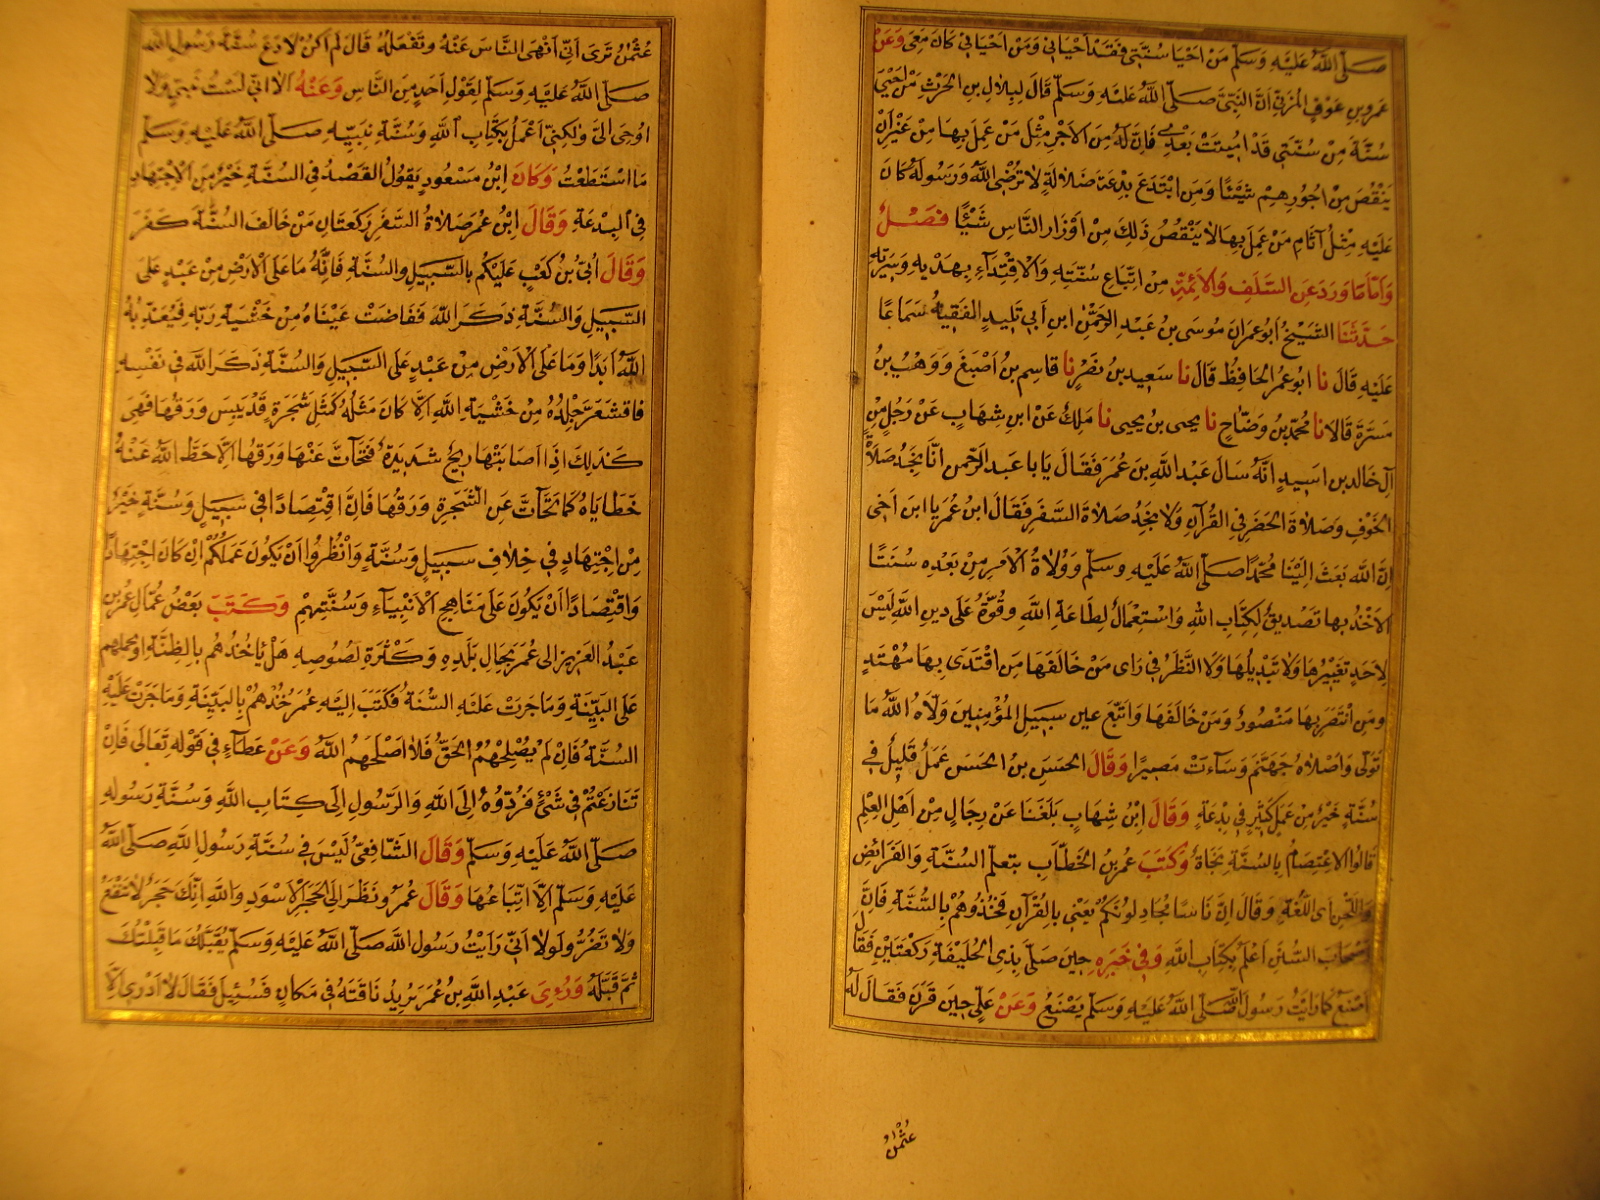 صَلَّى اللهُ عَلَيْهِ وَسَلَّمَ مَنْ اَحْيَا سُنَّتِي فَقَدْ اَحْيَانِي وَمَنْ اَحْيَانِي كَانَ مَعِي وَعَنْ
عمرو بن عَوْفٍ المُزَنِيّ اَنَّ النَّبِيَّ صَلَّى اللهُ عَلَيْهِ وَسَلَّمَ قَالَ لِبِلَالِ بنِ الحٰرِثِ مَنْ اَحْيَى
سُنَّةً مِنْ سُنَّتِي قَدْ اُمِيتَتْ بَعْدِي فَاِنَّ لَهُ مِنَ الاَجْرِ مِثْلَ مَنْ عَمِلَ بِهَا مِنْ غَيْرِ اَنْ
يَنْقُصَ مِنْ اُجُورِهِمْ شَيْئًا وَمَنِ ابْتَدَعَ بِدْعَةَ ضَلَالَةٍ لَا تُرْضِى اللهَ وَرَسُولَهُ كَانَ
عَلَيْهِ مِثْلُ آثَامِ مَنْ عَمِلَ بِهَا لَا يَنْقُصُ ذٰلِكَ مِنْ اَوْزَارِ النَّاسِ شَيْئًا فَصْلٌ
وَاَمَّا مَا وَرَدَ عَنِ السَّلَفِ وَالاَئِمَّةِ مِنِ اتِّبَاعِ سُنَّتِهِ وَالاِقْتِدَاءِ بِهَدْيِهِ وَسِيرَتِهِ
حَدَّثَنَا الشَّيْخُ اَبُو عِمْرَانَ مُوسَى بنُ عَبْدِ الرَّحْمٰنِ ابنِ اَبِي تَلِيدٍ الفَقِيهُ سَمَاعًا
عَلَيْهِ قَالَ نا ابو عمر الحَافِظُ قَالَ نا سَعِيد بن نَصْرٍ نا قَاسِم بنُ اَصْبَغَ وَوَهْبُ بنُ
مَسَرَّةَ قَالَا نا مُحَمَّد بنُ وَضَّاحٍ نا يحيى بنُ يحيى نا مٰلِكٌ عَنْ ابنِ شِهَابٍ عَنْ رَجُلٍ مِنْ
آلِ خَالِدِ بن اَسِيدٍ اَنَّهُ سَالَ عَبْدَ اللهِ بنَ عُمَرَ فَقَالَ يَا بَا عَبدِ الرَّحْمنِ اِنَّا نَجِدُ صَلَاةَ
الخَوْفِ وَصَلَاةَ الحَضَرِ فِي القُرْآنِ وَلَا نَجِدُ صَلَاةَ السَّفَرِ فَقَالَ ابن عُمَرَ يَا ابن اَخِي
اِنَّ اللهَ بَعَثَ اِلَيْنَا مُحَمَّدًا صَلَّى اللهُ عَلَيْهِ وَسَلَّمَ وَوُلَاةُ الْاَمْرِ مِنْ بَعْدِهِ سُنَنًا
الاَخْذُ بِهَا تَصْدِيقٌ لِكِتَابِ اللهِ وَاسْتِعْمَالٌ لِطَاعَةِ اللهِ وَقُوَّةٌ عَلَى دِينِ اللهِ لَيْسَ
لِاَحَدٍ تَغْيِيرُهَا وَلَا تَبْدِيلُهَا وَلَا النَّظَرُ فِي رَاىِ مَنْ خَالَفَهَا مَنِ اقْتَدَى بِهَا مُهْتَدٍ
وَمَنِ انْتَصَرَ بِهَا مَنْصُورٌ وَمَنْ خَالَفَهَا وَاتَّبَعَ غير سَبِيلِ المُؤْمِنِينَ وَلَّاهُ اللهُ مَا
تَوَلَّى وَاَصْلَاهُ جَهَنَّمَ وَسَاءَتْ مَصِيرًا وَقَالَ الحَسَن بنُ الحَسَن عَمَلٌ قَلِيلٌ فِي
سُنَّةٍ خَيْرٌ مِنْ عَمَلٍ كَثِيرٍ فِي بِدْعَةٍ وَقَالَ ابْنُ شِهَابٍ بَلَغَنَا عَنْ رِجَالٍ مِنْ اَهْلِ العِلْمِ
قَالُوا الاِعْتِصَامُ بِالسُّنَّةِ نَجَاةٌ وَكَتَبَ عمر بنُ الخَطَّابِ بِتَعَلُّمِ السُّنَّةِ وَالفَرَائِضِ
وَاللَّحْنِ اَىِ اللُّغَةِ وَقَالَ اِنَّ نَاسًا يُجَادِلُونَكُمْ يَعْنِي بِالقُرْآنِ فَخُذُوهُمْ بِالسُّنَّةِ فَاِنَّ
اَصْحَابَ السُّنَنِ اَعْلَمُ بِكِتَابِ اللهِ وَفِي خَبَرِهِ حِينَ صَلَّى بِذِى الحُلَيْفَةِ رَكْعَتَيْنِ فَقَالَ
اَصْنَعُ كَمَا رَاَيْتُ رَسُولَ اللهِ صَلَّى اللهُ عَلَيْهِ وَسَلَّمَ يَصْنَعُ وَعَنْ عَلِيّ حِينَ قَرَنَ فَقَالَ لَهُ
عُثْمٰنُ
عُثْمٰنُ تَرَى اَنِّي اَنْهَى النَّاسَ عَنْهُ وَتَفْعَلُهُ قَالَ لَمْ اَكُنْ لِاَدَعَ سُنَّةَ رَسُولِ اللهِ
صَلَّى اللهُ عَلَيْهِ وَسَلَّمَ لِقَوْلِ اَحَدٍ مِنَ النَّاسِ وَعَنْهُ اَلَا اِنِّي لَسْتُ بِنَبِيٍّ وَلَا
اُوحِىَ اِلَيَّ وَلٰكِنِّي اَعْمَلُ بِكِتَابِ اللهِ وَسُنَّةِ نَبِيِّهِ صَلَّى اللهُ عَلَيْهِ وَسَلَّمَ
مَا اسْتَطَعْتُ وَكَانَ ابْنُ مَسْعُودٍ يَقُولُ القَصْدُ فِي السُّنَّةِ خَيْرٌ مِنَ الْاِجْتِهَادِ
فِي الْبِدْعَةِ وَقَالَ ابْنُ عُمَرَ صَلَاةُ السَّفَرِ رَكْعَتَانِ مَنْ خَالَفَ السُّنَّةَ كَفَرَ
وَقَالَ اُبَيّ بْنُ كَعْبٍ عَلَيْكُمْ بِالسَّبِيلِ وَالسُّنَّةِ فَاِنَّهُ مَا عَلَى الْاَرْضِ مِنْ عَبْدٍ عَلَى
السَّبِيلِ وَالسُّنَّةِ ذَكَرَ اللهَ فَفَاضَتْ عَيْنَاهُ مِنْ خَشْيَةِ رَبِّهِ فَيُعَذِّبُهُ
اللهُ اَبَدًا وَمَا عَلَى الْاَرْضِ مِنْ عَبْدٍ عَلَى السَّبِيلِ وَالسُّنَّةِ ذَكَرَ اللهَ فِي نَفْسِهِ
فَاقْشَعَرَّ جِلْدُهُ مِنْ خَشْيَةِ اللهِ اِلَّا كَانَ مَثَلُهُ كَمَثَلِ شَجَرَةٍ قَدْ يَبِسَ وَرَقُهَا فَهِيَ
كَذٰلِكَ اِذَا اَصَابَتْهَا رِيحٌ شَدِيدَةٌ فَتَحَاتَّ عَنْهَا وَرَقُهَا اِلَّا حَطَّ اللهُ عَنْهُ
خَطَايَاهُ كَمَا تَحَاتَّ عَنِ الشَّجَرَةِ وَرَقُهَا فَاِنَّ اقْتِصَادًا فِي سَبِيلٍ وَسُنَّةٍ خَيْرٌ
مِنْ اِجْتِهَادٍ فِي خِلَافِ سَبِيلٍ وَسُنَّةٍ وَانْظُرُوا اَنْ يَكُونَ عَمَلُكُمْ اِنْ كَانَ اجْتِهَادًا
وَاقْتِصَادًا اَنْ يَكُونَ عَلَى مَنَاهِجِ الْاَنْبِيَاءِ وَسُنَّتِهِمْ وَكَتَبَ بَعْضُ عُمَّالِ عمر بن
عَبْدِ العَزِيزِ اِلَى عُمَرَ بِحَالِ بَلَدِهِ وَكَثْرَةِ لُصُوصِهِ هَلْ يَاْخُذُهُمْ بِالظِّنَّةِ او يحملهم
عَلَى البَيِّنَةِ وَمَا جَرَتْ عَلَيْهِ السُّنَّةُ فَكَتَبَ اِلَيْهِ عُمَرُ خُذْهُمْ بِالبَيِّنَةِ وَمَا جَرَتْ عَلَيْهِ
السُّنَّةُ فَاِنْ لَمْ يُصْلِحْهُمُ الحَقُّ فَلَا اَصْلَحَهُمُ اللهُ وَعَنْ عَطَاءٍ فِي قَوْلِهِ تَعَالَى فَاِنْ
تَنَازَعْتُمْ فِي شَيْءٍ فَرُدُّوهُ اِلَى اللهِ وَالرَّسُولِ اِلَى كِتَابِ اللهِ وَسُنَّةِ رَسُولِهِ
صَلَّى اللهُ عَلَيْهِ وَسَلَّمَ وَقَالَ الشَّافِعِيّ لَيْسَ فِي سُنَّةِ رَسُولِ اللهِ صَلَّى اللهُ
عَلَيْهِ وَسَلَّمَ اِلَّا اتِّبَاعُهَا وَقَالَ عُمَرُ وَنَظَرَ اِلَى الحَجَرِ الْاَسْوَدِ وَاللهِ اِنَّكَ حَجَرٌ لَا تَنْفَعُ
وَلَا تَضُرُّ وَلَوْلَا اَنِّي رَاَيْتُ رَسُولَ اللهِ صَلَّى اللهُ عَلَيْهِ وَسَلَّمَ يُقَبِّلُكَ مَا قَبَّلْتُكَ
ثُمَّ قَبَّلَهُ وَرُئِىَ عَبد اللهِ بن عُمَرَ يُدِيرُ نَاقَتَهُ فِي مَكَانٍ فَسُئِلَ فَقَالَ لَا اَدْرِى اِلَّا